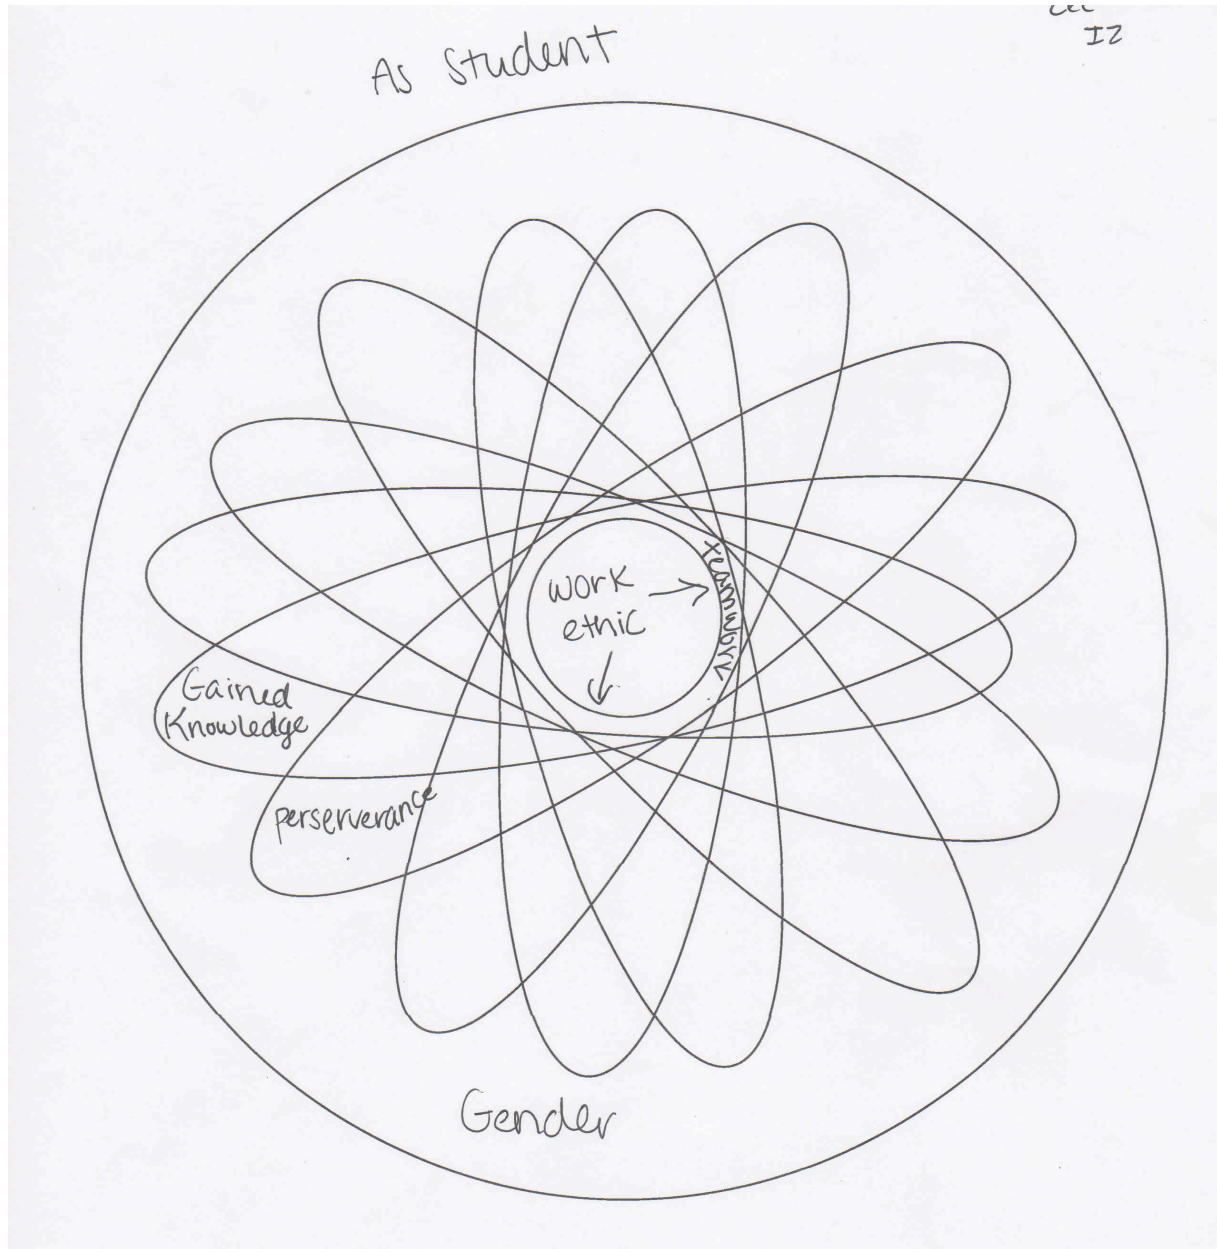 As student
IZ
work
ethic
teamwork
Gained
Knowledge
perserverance
Gender